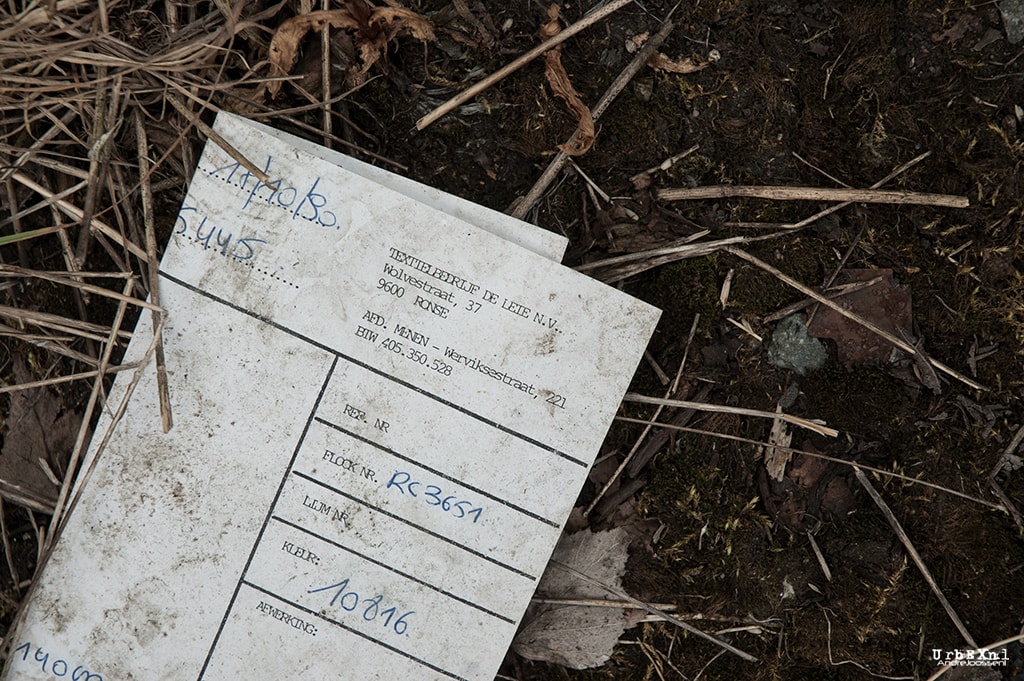 17/10/80.
5.445
TEXTIELBEDRIJF DE LEIE N.V..
Wolvestraat, 37
9600 RONSE
AFD. MENEN - Werviksestraat, 221
BTW 405.350.528
REF. NR
FLOCK NR. RC3651.
LIJM NR
KLEUR:
10816.
AFWERKING:
UrbEXnl
AndreJoosse.nl